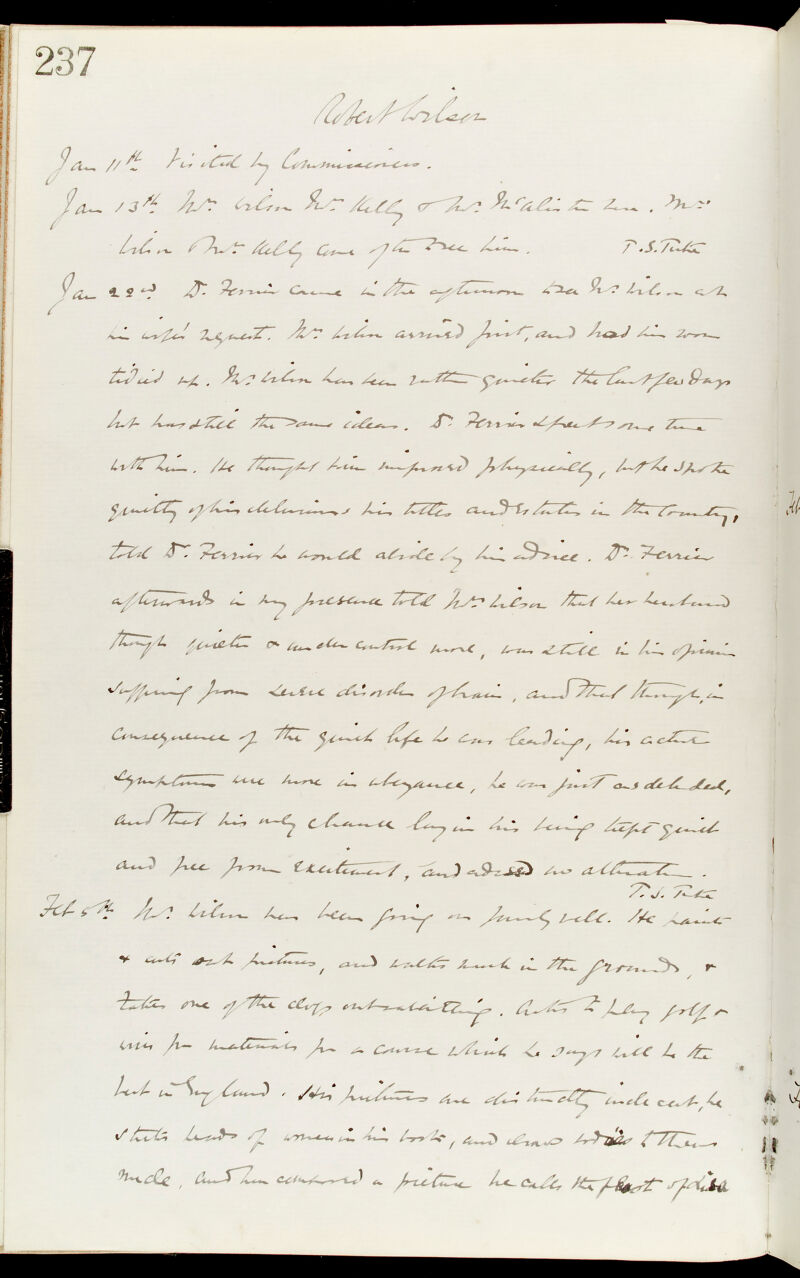 237
Robert Wilson
Jan 11th Visited by Commissioners.
Jan 13th Mrs Wilson Mr Kelly & Mr McAlister here. Mrs
Wilson & Mr Kelly came often to see him. T.S. Tuke
Jan 22nd Dr Ferrier came in the afternoon to see Mr Wilson at
his wife's request. Mrs Wilson arrived first, and had his room
tidied up. Mr Wilson has been rather quieter the last few days
but has still the same ideas. Dr Ferrier spent some time
with him. He thought him improved physically, but he spoke
quietly of his delusions his titles and estates in the country,
told Dr Ferrier he would abide by his advice. Dr Ferrier
afterwards in my presence told Mrs Wilson that her husband
though quieter & under control more, was still in his opinion
suffering from severe disorder of brain, and that though, in
consequence of the quiet life he was leading, his active
symptoms are more in abeyance, he was just as deluded,
and that his only chance lay in his being kept quiet
and free from excitement, and advised no alteration.
T. S. Tuke
Feb 5th Mr Wilson has been going on fairly well. He paints
& cuts out pictures, and walks much in the grounds, &
takes one of the dogs out rabbiting. Asks to play golf &
wires for materials for a course which he says will be the
best in England. His pictures are distinctly indecent, he
sticks heads of women in his book, and draws bodies to them
nude, and has composed a picture he calls the of